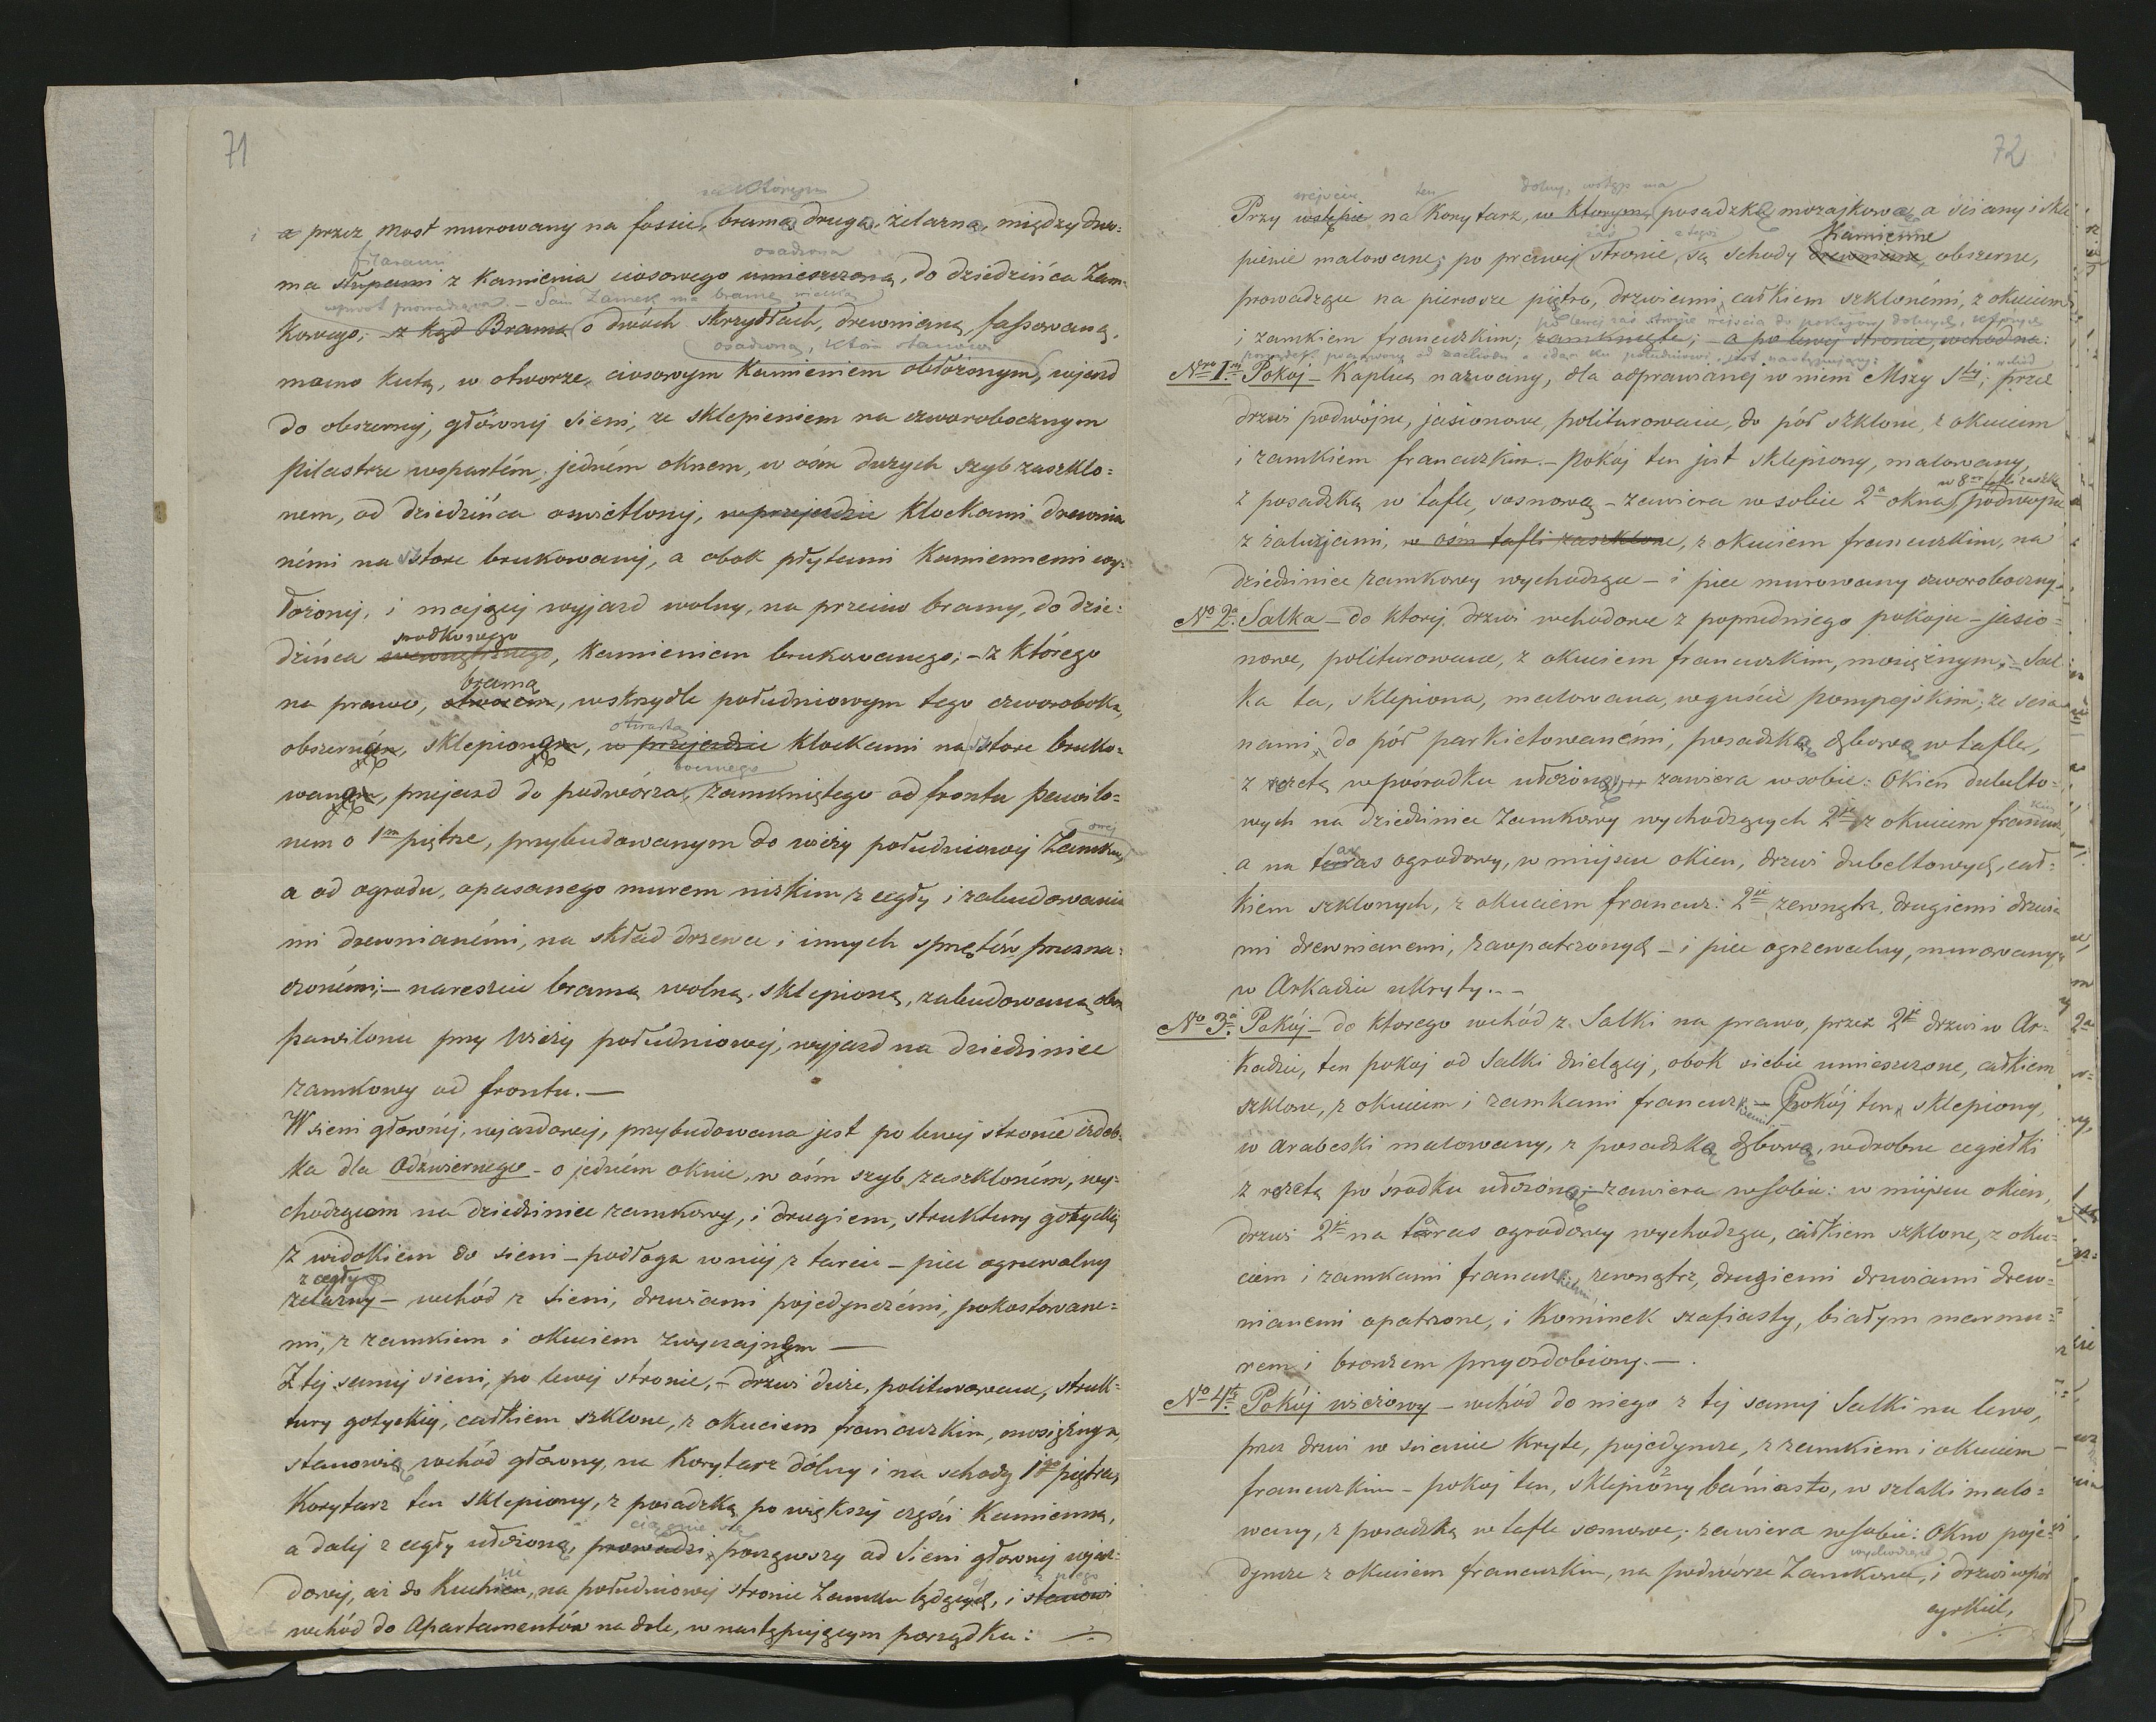 71
na którym
i a przez most murowany na fossie, bramą drugą, żelazną, między dwo-
filarami
osadzona
ma słupami z kamienia ciosowego umieszczoną, do dziedzińca Zam-
wprost prowadząca. – Sam Zamek ma bramę wielką
kowego; – z kąd Brama o dwóch skrzydłach, drewnianą, fassowaną,
osadzoną, która stanowi
mocno kutą, w otworze, ciosowym kamieniem obłóżonym, wjazd
do obszernéj, głównéj sieni, ze sklepieniem na czworobocznym
pilastrze wspartém, jedném oknem, w ośm dużych szyb zaszklo=
nem, od dziedzińca oswietlonéj, w przejeździe klockami drewnia
némi na sztorc brukowanéj, a obok płytami kamiennemi wy-
łożonéj, i mającéj wyjazd wolny, na przeciw bramy, do dzie-
srodkowego
dzińca wewnętrznego, kamieniem brukowanego; – z którego
bramą
na prawo, otworem, wskrzydle południowym tego czworoboku,
otwartą
obszerną, sklepioną, w przejeździe klockami na sztorc bruko-
bocznego
waną, przejazd do podwórza, zamkniętego od frontu pawilo-
nem o 1m piętrze, przybudowanym do wieży południowéj Zamku,
a od ogrodu, opasanego murem nizkim z cegły i zabudowania
mi drewnianémi, na skład drzewa i innych sprzętów przezna-
czonémi; – nareszcie bramą wolną, sklepioną, zabudowaną obok
pawilonu przy Wieży południowéj, wyjazd na dziedziniec
zamkowy od frontu. —
W sieni głównéj, wjazdowéj, przybudowana jest po lewéj stronie izdeb-
ka dla Odzwiernego – o jedném oknie, w ośm szyb zaszkloném, wy-
chodzącem na dziedziniec zamkowy, i drugiem, struktury gotyckiéj
z widokiem do sieni – podłoga wniéj z tarcic – piec ogrzewalny
z cegły
żelazny – wchód z sieni, drzwiami pojedynczémi, pokostowane-
mi, z zamkiem i okuciem zwyczajnym —
Z téj saméj sieni, po lewéj stronie, – drzwi duże, politurowane, struk-
tury gotyckiéj, całkiem szklone, z okuciem francuzkim, mosiężnym,
stanowią wchód główny, na korytarz dólny i na schody 1go piętra,
Korytarz ten sklepiony, z posadzką po większéj części kamienną,
ciągnie się
a daléj z cegły ułożoną, prowadzi, począwszy od sieni głównéj wjaz-
z niego
dowéj, aż do kuchni, na południowéj stronie Zamku będącéj, i stanowi
wchód do Apartamentów na dole, w następującym porządku: —
72
wejściu ten dolny, wstęp ma
Przy wstępie na korytarz, w którym, posadzkę mozajkową, a ściany i skle
zaś z tegoż kamienne
pienie malowane; po prawéj stronie, są schody drewniane, obszerne,
prowadzące na pierwsze piętro, drzwiami, całkiem szklonémi, z okuciem
po lewéj zaś stronie wejścia do pokojów dolnych, których
i zamkiem francuzkim; zamknięte; – a po lewéj stronie, wchód na:
porządek począwszy od zachodu a idąc ku południowi, jest następujący: wchód
Nro 1m. Pokój – Kaplicą nazwany, dla odprawianéj w niem Mszy Stéj; przez
drzwi podwójne, jasionowe, politurowane, do pół szklone, z okuciem
i zamkiem francuzkim. – Pokój ten jest sklepiony, malowany,
w 8m tafli zaszkl.
z posadzką w tafle, sosnową – zawiera w sobie 2a okna podwojne
z żaluzjami, w ośm tafli zaszklone, z okuciem francuzkim, na
dziedziniec zamkowy wychodzące – i piec murowany czworoboczny.
No 2a. Salka – do któréj drzwi wchodowe z poprzedniego pokoju – jasio=
nowe, politurowane, z okuciem francuzkim, mosiężnym; – Sal
ka ta, sklepiona, malowana, w guście pompejskim, ze ścia
nami do pół parkietowanémi, posadzką dębową w tafle,
z rozetą w pośrodku ułożoną, – zawiera w sobie: Okien dubelto=
wych na dziedziniec Zamkowy wychodzących 2ie z okuciem francuz
kim
a na taras ogrodowy, w miejscu okien, drzwi dubeltowych, cał-
kiem szklonych, z okuciem francuz: 2ie zewnątrz, drugiemi drzwia
mi drewnianemi, zaopatrzonych – i piec ogrzewalny, murowany,
w Arkadzie ukryty. –
No 3a. Pokój – do którego wchód z Salki na prawo, przez 2ie drzwi w Ar-
kadzie, ten pokój od Salki dzielącéj, obok siebie umieszczone, całkiem
szklone, z okuciem i zamkami francuzkiemi – Pokój ten, sklepiony,
w arabeski malowany, z posadzką dębową, w drobne cegiełki
z rozetą po środku ułożoną; – zawiera w sobie: w miejscu okien,
drzwi 2ie na taras ogrodowy wychodzące, całkiem szklone, z oku-
ciem i zamkami francuzkiemi, zewnątrz, drugiemi drzwiami drew=
nianemi opatrzone, i kominek szafiasty, białym marmu=
rem i bronzem przyozdobiony. —
No 4ty. Pokój wieżowy – wchód do niego z téj saméj Salki na lewo,
przez drzwi w ścianie kryte, pojedyncze, z zamkiem i okuciem
francuzkim – pokój ten, sklepiony baniasto, w szlaki malo=
wany, z posadzką w tafle sosnowe; zawiera w sobie: Okno poje-
wychodzące
dyncze z okuciem francuzkim, na podwórze Zamkowe, i drzwi wpół
cyrkiel,